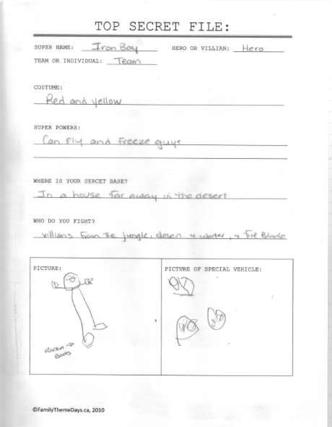 TOP SECRET FILE:
SUPER NAME: Iron Boy HERO OR VILLIAN: Hero
TEAM OR INDIVIDUAL: Team
COSTUME:
Red and yellow
SUPER POWERS:
Can fly and Freeze guys
WHERE IS YOUR SERCET BASE?
In a house far away in the desert
WHO DO YOU FIGHT?
villians from the jungle, desert
PICTURE: PICTURE OF SPECIAL VEHICLE:
©FamilyThemeDays.ca, 2010